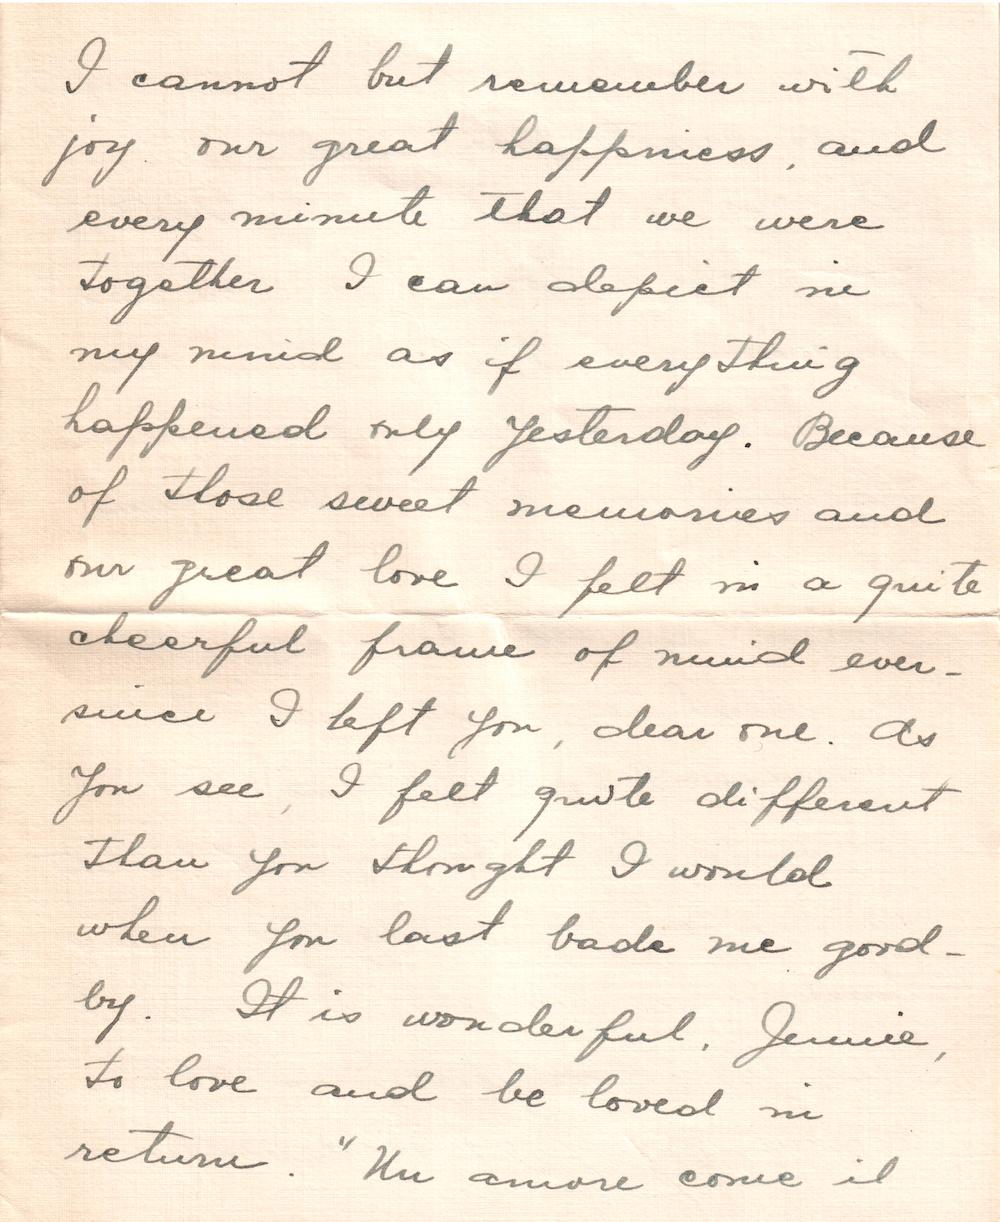 I cannot but remember with
joy our great happiness, and
every minute that we were
together I can depict in
my mind as if everything
happened only yesterday. Because
of those sweet memories and
our great love I felt in a quite
cheerful frame of mind ever-
since I left you, dear one. As
you see, I felt quite different
than you thought I would
when you last bade me good-
by. It is wonderful, Jennie,
to love and be loved in
return. "Un amore come il